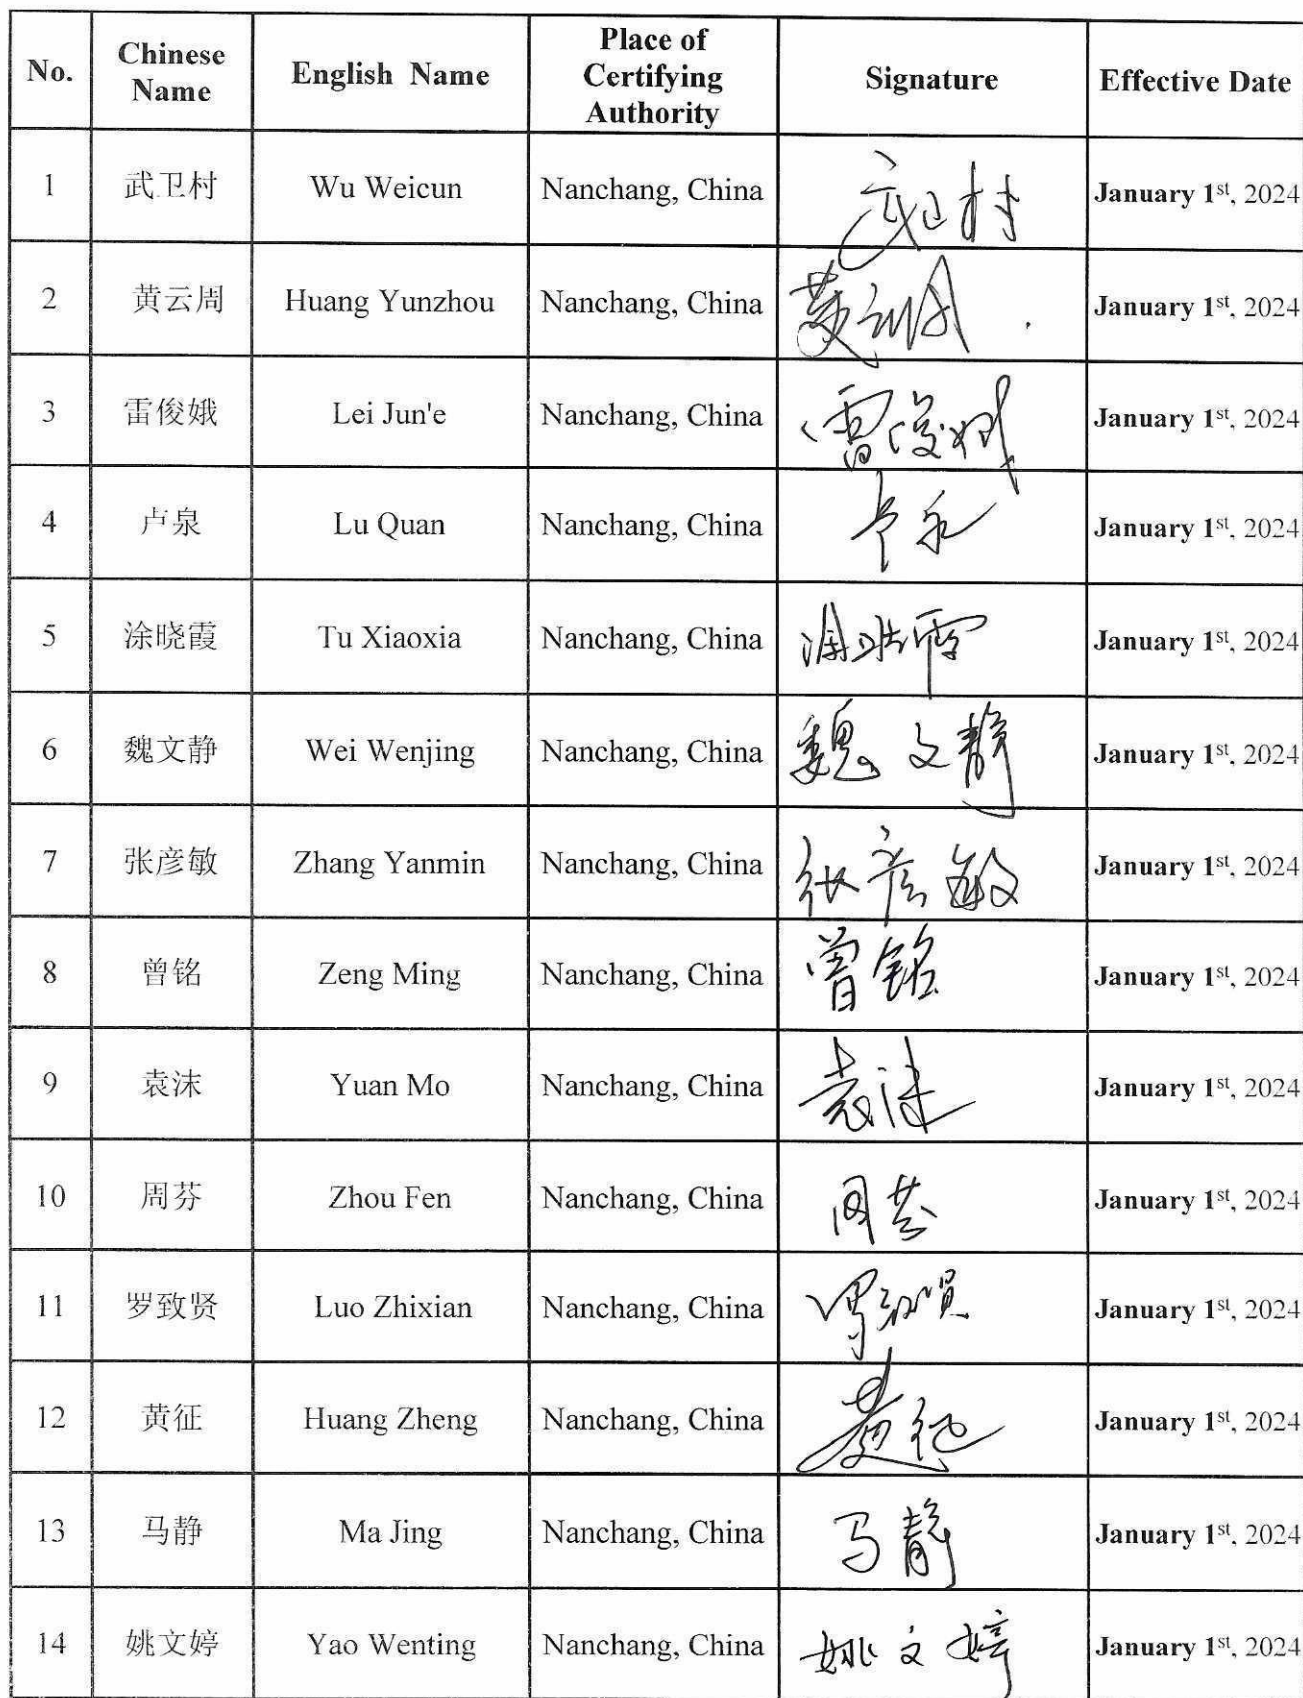 No. Chinese Name English Name Place of Certifying Authority Signature Effective Date
1 武卫村 Wu Weicun Nanchang, China 武卫村 January 1st, 2024
2 黄云周 Huang Yunzhou Nanchang, China 黄云周 January 1st, 2024
3 雷俊娥 Lei Jun'e Nanchang, China 雷俊娥 January 1st, 2024
4 卢泉 Lu Quan Nanchang, China 卢泉 January 1st, 2024
5 涂晓霞 Tu Xiaoxia Nanchang, China 涂晓霞 January 1st, 2024
6 魏文静 Wei Wenjing Nanchang, China 魏文静 January 1st, 2024
7 张彦敏 Zhang Yanmin Nanchang, China 张彦敏 January 1st, 2024
8 曾铭 Zeng Ming Nanchang, China 曾铭 January 1st, 2024
9 袁沫 Yuan Mo Nanchang, China 袁沫 January 1st, 2024
10 周芬 Zhou Fen Nanchang, China 周芬 January 1st, 2024
11 罗致贤 Luo Zhixian Nanchang, China 罗致贤 January 1st, 2024
12 黄征 Huang Zheng Nanchang, China 黄征 January 1st, 2024
13 马静 Ma Jing Nanchang, China 马静 January 1st, 2024
14 姚文婷 Yao Wenting Nanchang, China 姚文婷 January 1st, 2024